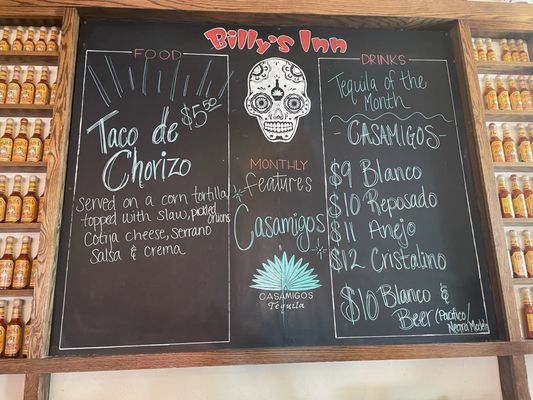 Billy's Inn
FOOD
$5.50
Taco de
Chorizo
served on a corn tortilla
topped with slaw, pickled onions
Cotija cheese, serrano
Salsa & crema
MONTHLY
features
Casamigos
CASAMIGOS
Tequila
DRINKS
Tequila of the
Month
CASAMIGOS
$9 Blanco
$10 Reposado
$11 Anejo
$12 Cristalino
$10 Blanco &
Beer (Pacifico/
Negra Modelo)